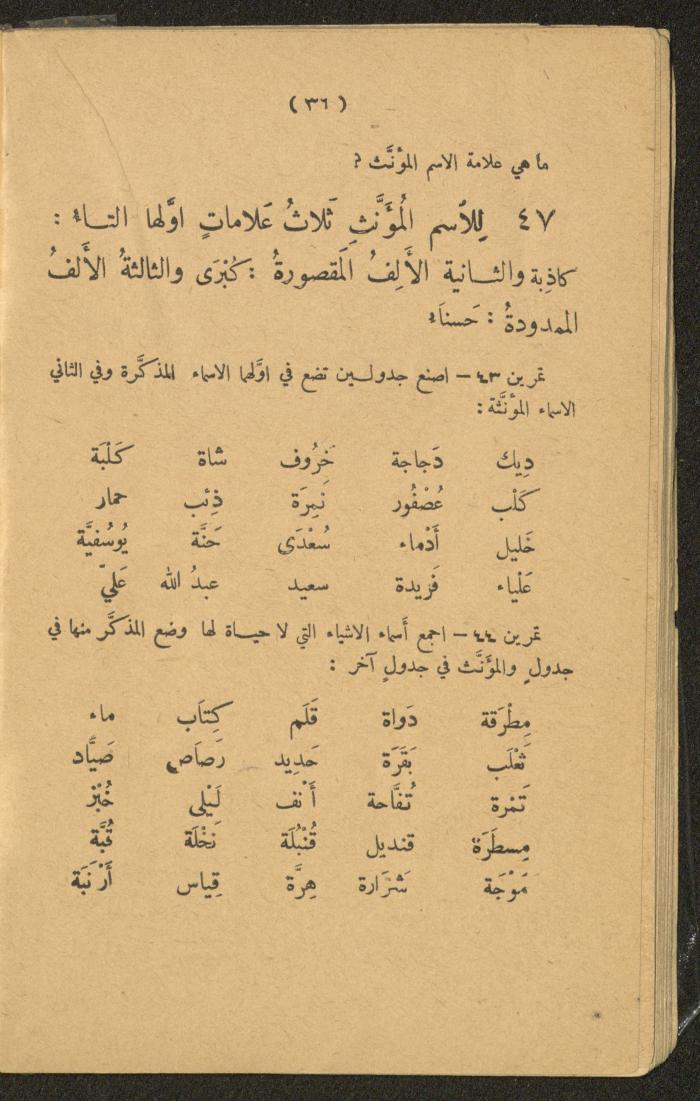 ( ٣٦ )
ما هي علامة الاسم المؤنَّث ؟
٤٧ لِلاَسمِ المُؤَنَّثِ ثَلاثُ عَلاماتٍ اوَّلها التاء :
كاذِبة والثانية الأَلِفُ المَقصورةُ : كُبْرَى والثالثةُ الأَلفُ
الممدودةُ : حَسناء
تمرين ٤٣ – اصنع جدولين تضع في اوَّلهما الاسماء المذكَّرة وفي الثاني
الاسماء المؤنَّثة :
دِيك دَجاجة خَرُوف شاة كَلْبَة
كَلْب عُصْفُور نَمِرَة ذِئب حمار
خَليل أَدْماء سُعْدَى حَنَّة يُوسُفيَّة
عَلْياء فَريدة سعيد عبدُ الله عَليّ
تمرين ٤٤ – اجمع أَسماء الاشياء التي لا حياة لها وضع المذكَّر منها في
جدولٍ والمؤَنَّث في جدولٍ آخر :
مِطْرَقة دَواة قَلَم كِتاب ماء
ثَعْلَب بَقَرَة حَديد رَصَاص صَيَّاد
تَمْرة تُفَّاحة أَنْف لَيْلى خُبْز
مِسطَرَة قنديل قُنْبُلَة نَخْلَة قُبَّة
مَوْجَة شَرَارة هِرَّة قِياس أَرْنَبَة